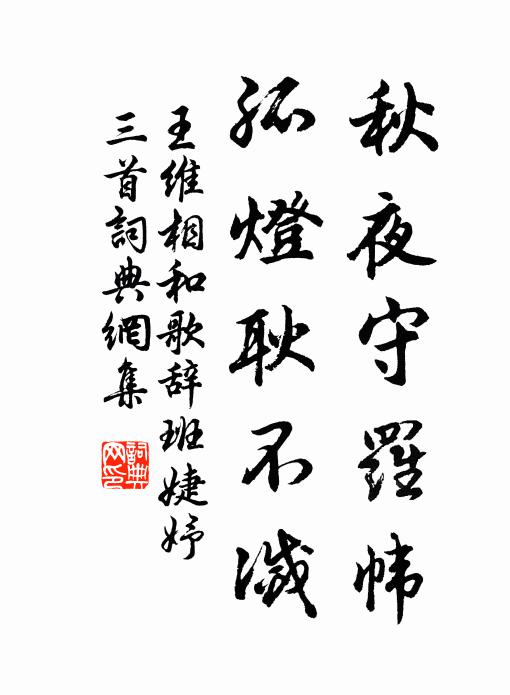 秋夜守羅幃
孤燈耿不滅
王維相和歌辞班婕妤
三首詞典網集
詞典網印